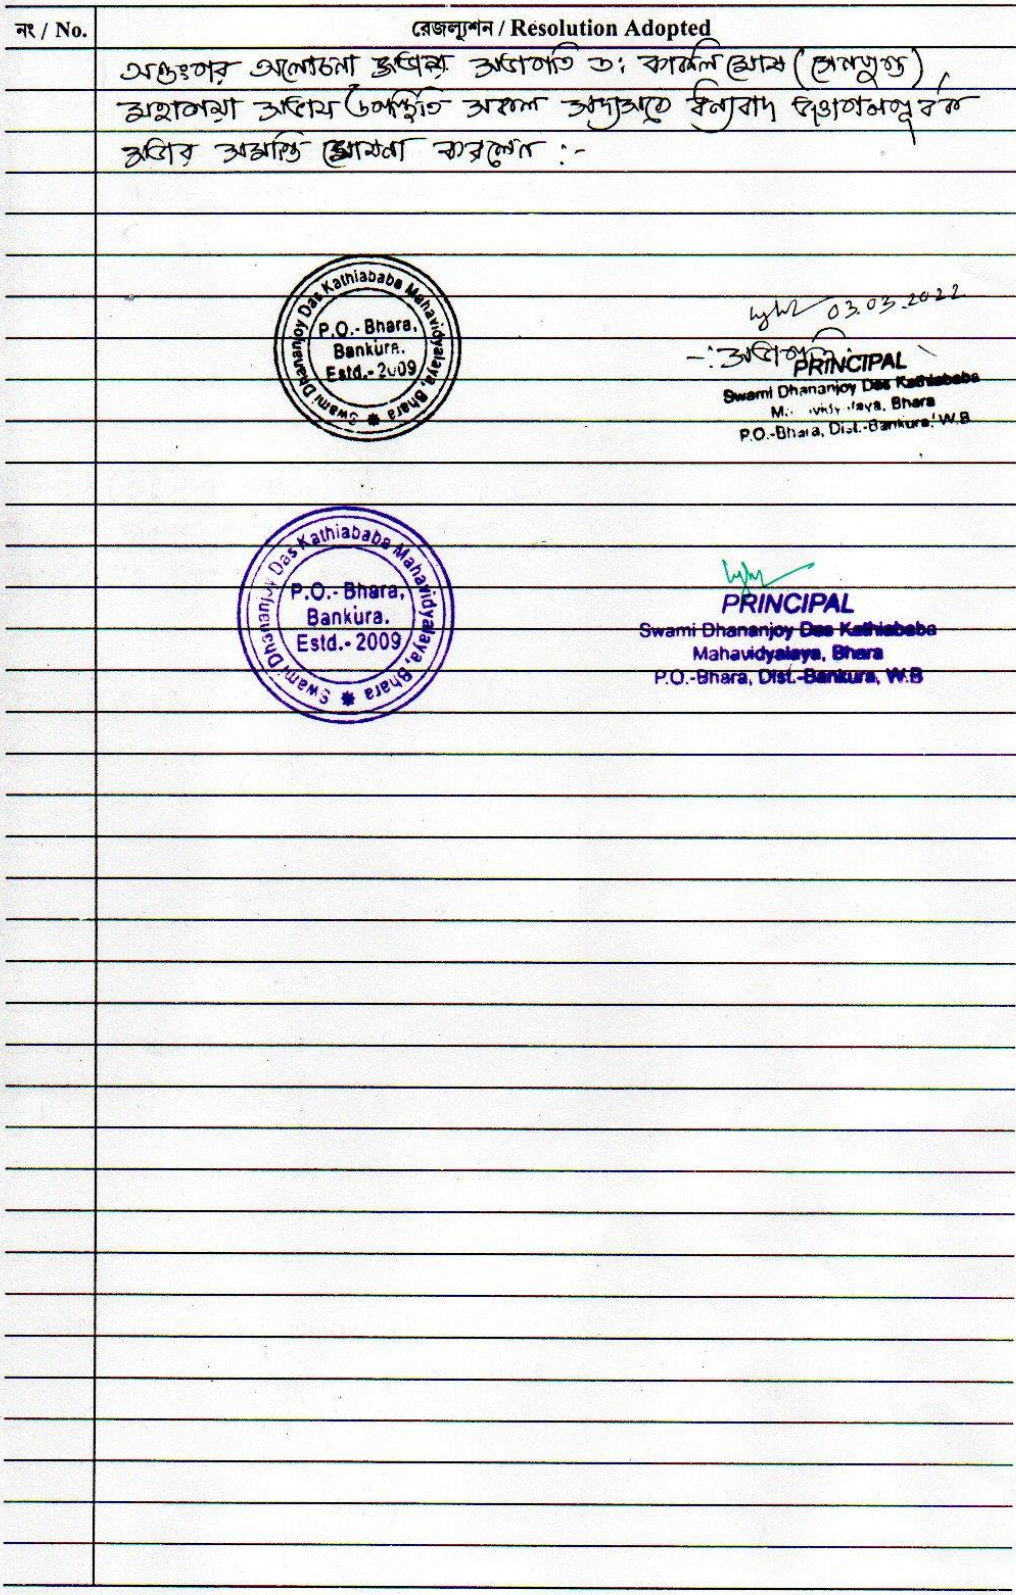 নং / No.
রেজল্যুশন / Resolution Adopted
অতঃপর আলোচনা সভার সভাপতি ড: কাকলি ঘোষ (সেনগুপ্ত)
মহাশয়া সভায় উপস্থিত সকল সদ্যসকে ধন্যবাদ জ্ঞাপনপূর্বক
সভার সমাপ্তি ঘোষনা করলেন :-
Swami Dhananjoy Das Kathiababa Mahavidyalaya, Bhara
P.O.- Bhara,
Bankura.
Estd.- 2009
03.03.2022
-: সভাপতি :-
PRINCIPAL
Swami Dhananjoy Das Kathiababa
Mahavidyalaya, Bhara
P.O.-Bhara, Dist.-Bankura, W.B
Swami Dhananjoy Das Kathiababa Mahavidyalaya, Bhara
P.O.- Bhara,
Bankura.
Estd.- 2009
PRINCIPAL
Swami Dhananjoy Das Kathiababa
Mahavidyalaya, Bhara
P.O.-Bhara, Dist.-Bankura, W.B